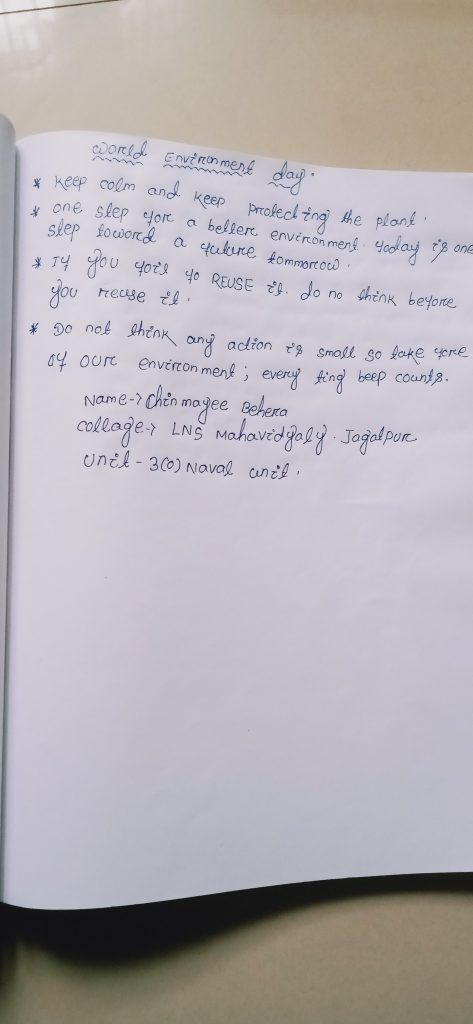 World Environment day.
* Keep colm and keep protecting the plant.
* one step yore a betlere environment yoday is one
step toword a yuture tommorrow.
* Iy you yoil yo REUSE it. do no think beyore
you reuse it.
* Do not think any action is small so take yore
oy our environment; every ting beep counts.
Name-> Chinmayee Behera
collage-> LNS Mahavidyaly. Jagatpur
Unit - 3(O) Naval unit.